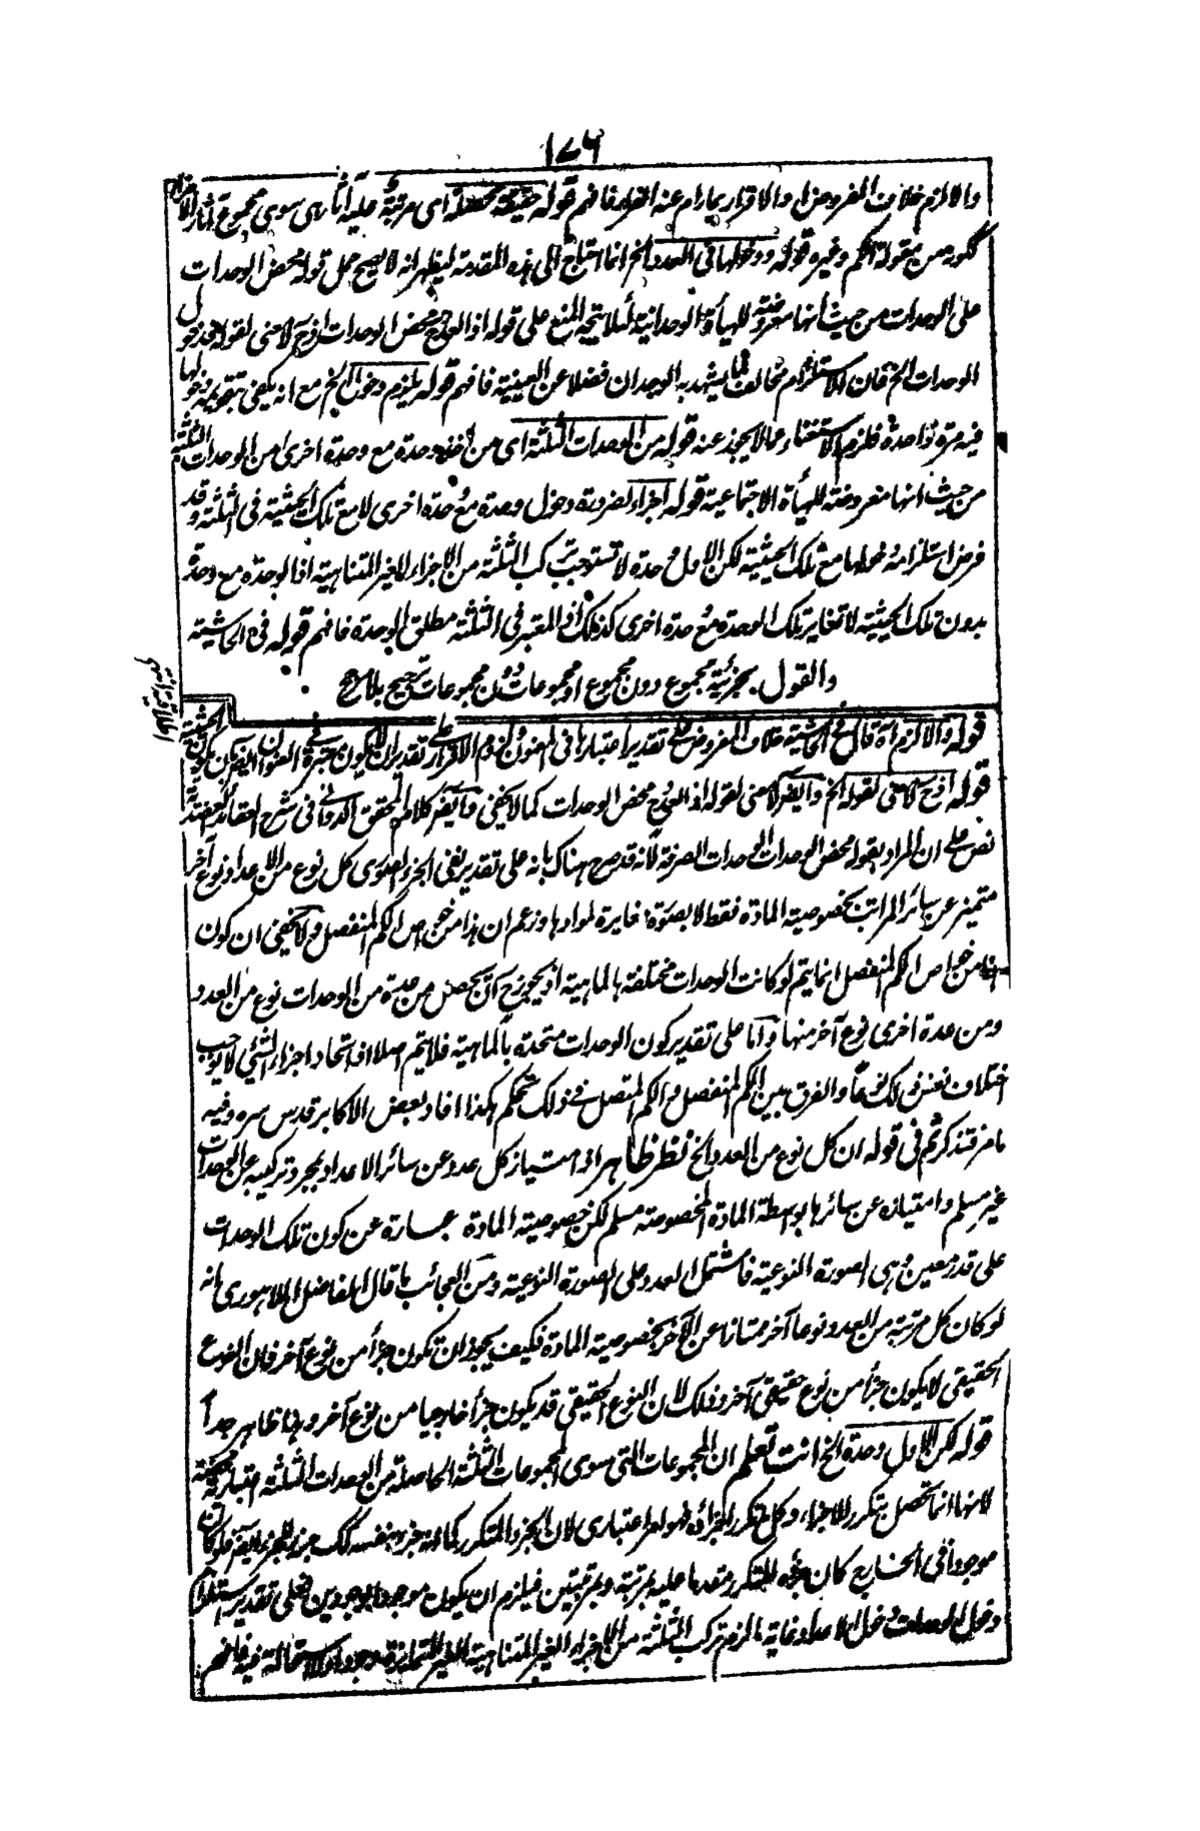 ١٧٦
والالزم خلاف المفروض او الاقرار بما رام عنه الفرار فافهم قوله حقيقة محصلة اى مرتبة عليه آثار هى سوى مجموع آثار الاجزاء
ككونه من مقولة الكم وغيره قوله ودخولها فى العدد الخ انما احتاج الى هذه المقدمة ليظهر انه لا يصح حمل قوله محض الوحدات
على الوحدات من حيث انها معروضة للهيأة الوحدانية لئلا يتجه المنع على قوله اذ العدد محض الوحدات اذ ح لا معنى لقوله فدخول
الوحدات الخ فان الاستلزام مخالف لما يشهد به الوجدان فضلا عن العينية فافهم قوله يلزم دخول الخ مع انه يكفى تقويمه دخولها
فيه مرة واحدة فلزم الاستغناء عما لا يجوز عنه قوله من الوحدات الثلثة اى من اخذ وحدة مع وحدة اخرى من الوحدات الثلثة
من حيث انها معروضة للهيأة الاجتماعية قوله اجزاء لضرورة دخول وحدة مع وحدة اخرى لا مع تلك الحيثية فى الثلثة وقد
فرض استلزامه دخولها مع تلك الحيثية لكن الاول وحدة لا تستوجب تركب الثلثة من الاجزاء الغير المتناهية اذ الوحدة مع وحدة
بدون تلك الحيثية لا تغاير تلك الوحدة مع وحدة اخرى كذلك اذ المعتبر فى الثلثة مطلق الوحدة فافهم قوله فى الحاشية
والقول بجزئية مجموع دون مجموع او مجموعات دون مجموعات ترجيح بلا مرجح
قوله والا لزم آه قال فى الحاشية خلاف المفروض على تقدير اعتبارها فى المعنون لزوم الاقرار على تقدير ان لا يكون معتبرة فى العنوان ايضا
قوله اذ ح لا معنى لقوله الخ وايضا لا معنى لقوله اذ العدد ح محض الوحدات كما لا يخفى وايضا كلام المحقق الدوانى فى شرح العقائد العضدية
نص على ان المراد بقوله محض الوحدات الوحدات الصرفة لانه قد صرح هناك بانه على تقدير نفى الجزء الصورى كل نوع من الاعداد نوع آخر
متميز عن سائر المراتب بخصوصية المادة فقط لا بصورة مغايرة لموادها وزعم ان هذا من خواص الكم المنفصل ولا يخفى ان كون
هذا من خواص الكم المنفصل انما يتم لو كانت الوحدات مختلفة بالماهية اذ يجوز ح ان يحصل من عدة من الوحدات نوع من العدد
ومن عدة اخرى نوع آخر منها واما على تقدير كون الوحدات متحدة بالماهية فلا يتم اصلا اذ اتحاد اجزاء الشئ لا يوجب
اختلاف نفس ذلك نوعا والفرق بين الكم المنفصل والكم المتصل فى ذلك تحكم هكذا افاد بعض الاكابر قدس سره وفيه
ما مر فتذكر ثم فى قوله ان كل نوع من العدد الخ نظر ظاهر اذ امتياز كل عدد عن سائر الاعداد بمجرد تركيبه عن الوحدات
غير مسلم وامتيازه عن سائرها بواسطة المادة المخصوصة مسلم لكن خصوصية المادة عبارة عن كون تلك الوحدات
على قدر معين وهى الصورة النوعية فاشتمل العدد على الصورة النوعية ومن العجائب ما قال الفاضل اللاهورى بانه
لو كان كل مرتبة من العدد نوعا آخر ممتازا عن الآخر بخصوصية المادة فكيف يجوز ان تكون جزأ من نوع آخر فان النوع
الحقيقى لا يكون جزأ من نوع حقيقى آخر وذلك لان النوع الحقيقى قد يكون جزأ خارجيا من نوع آخر وهذا ظاهر جدا
قوله لكن الاول وحدة الخ انت تعلم ان المجموعات التى سوى المجموعات الثلثة الحاصلة من الوحدات الثلثة اعتبارية محضة
لانها انما تحصل بتكرر الاجزاء وكل متكرر اجزائه فهو امر اعتبارى لان الجزء المتكرر كما انه جزء بنفسه كذلك جزء لجزئه ايضا فلو كان
موجودا فى الخارج كان جزؤه المتكرر متقدما عليه بمرتبة وبمرتبتين فيلزم ان يكون موجودا بوجودين فعلى تقدير استلزام
دخول الوحدات دخول الاعداد غاية ما لزم تركب الثلثة من الاجزاء الغير المتناهية الغير المتمايزة وجودا ولا استحالة فيه فافهم